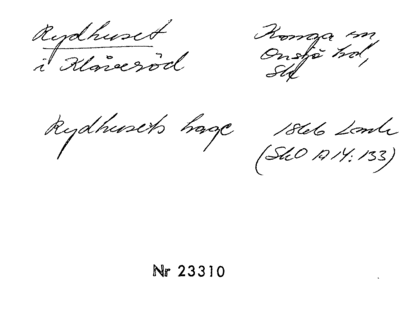 Rydhuset
i Klåveröd
Konga sn,
Onsjö hd,
Sk
Rydhusets hage
1866 Lantm
(SkO A14:133)
Nr 23310